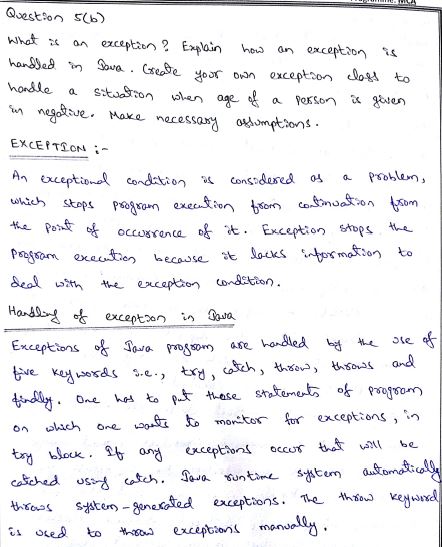 Programme: MCA
Question 5(b)
What is an exception? Explain how an exception is
handled in Java. Create your own exception class to
handle a situation when age of a person is given
in negative. Make necessary assumptions.
EXCEPTION :-
An exceptional condition is considered as a problem,
which stops program execution from continuation from
the point of occurrence of it. Exception stops the
program execution because it lacks information to
deal with the exception condition.
Handling of exception in Java
Exceptions of Java program are handled by the use of
five keywords i.e., try, catch, throw, throws and
finally. One has to put those statements of program
on which one wants to monitor for exceptions, in
try block. If any exceptions occur that will be
catched using catch. Java runtime system automatically
throws system-generated exceptions. The throw keyword
is used to throw exceptions manually.